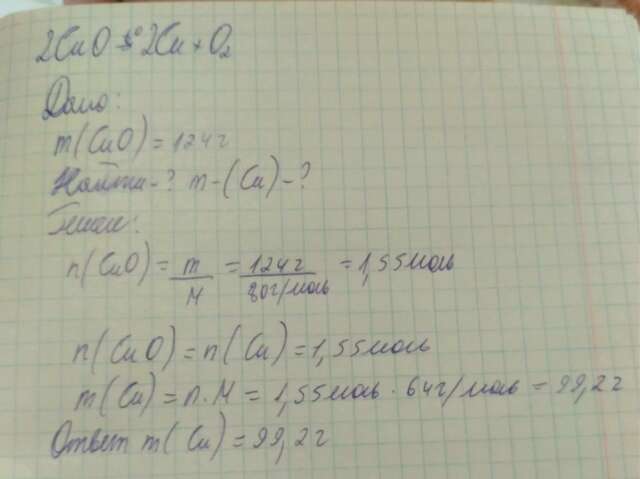 2CuO = 2Cu + O₂
Дано:
m(CuO) = 124г
Найти - ? m-(Cu) - ?
n(CuO) = m/M = 124г/80г/моль = 1,55моль
n(CuO) = n(Cu) = 1,55моль
m(Cu) = n·M = 1,55моль · 64г/моль = 99,2г
Ответ m(Cu) = 99,2г